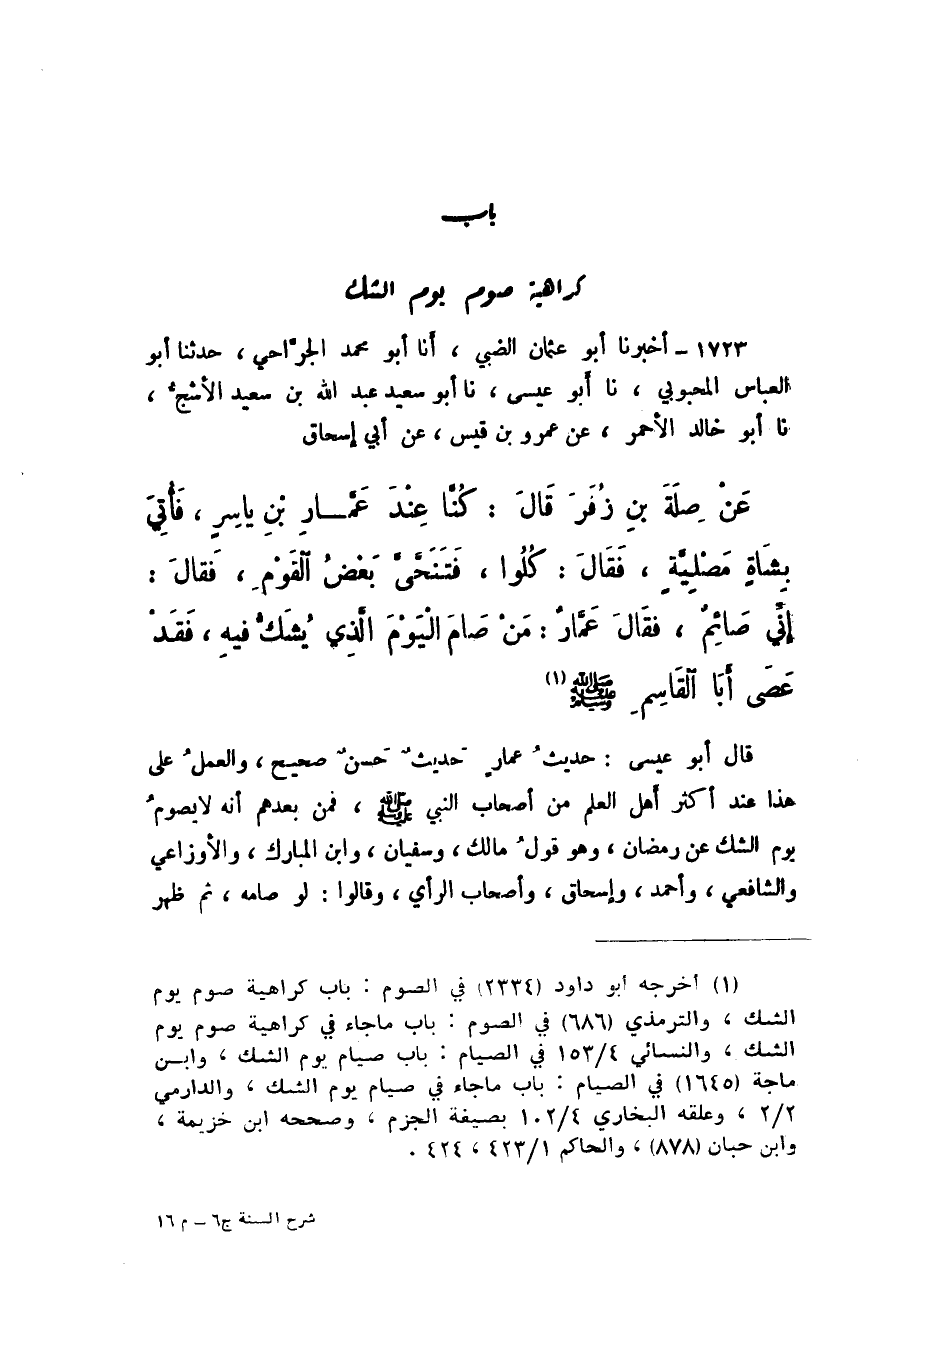 باب
كراهية صوم يوم الشك
١٧٢٣ ـ أخبرنا أبو عثمان الضبي ، أنا أبو محمد الجرّاحي ، حدثنا أبو
العباس المحبوبي ، نا أبو عيسى ، نا أبو سعيد عبد الله بن سعيد الأشجُّ ،
نا أبو خالد الأحمر ، عن عمرو بن قيس ، عن أبي إسحاق
عَنْ صِلَةَ بنِ زُفَرَ قَالَ : كُنَّا عِنْدَ عَمَّــارِ بْنِ ياسِرٍ ، فَأُتِيَ
بِشَاةٍ مَصْلِيَّةٍ ، فَقَالَ : كُلُوا ، فَتَنَحَّىٰ بَعْضُ ٱلقَوْمِ ، فَقالَ :
إِنِّي صَائِمٌ ، فقَالَ عَمَّارٌ : مَنْ صَامَ الْيَوْمَ الَّذِي يُشَكُّ فيهِ ، فَقَدْ
عَصَى أَبَا ٱلقَاسِمِ ﷺ (١)
قال أبو عيسى : حديثُ عمارٍ حَديثٌ حَسنٌ صحيح ، والعملُ على
هذا عند أكثر أهل العلم من أصحاب النبي ﷺ ، فمن بعدهم أنه لايصومُ
يوم الشك عن رمضان ، وهو قولُ مالك ، وسفيان ، وابن المبارك ، والأوزاعي
والشافعي ، وأحمد ، وإسحاق ، وأصحاب الرأي ، وقالوا : لو صامه ، ثم ظهر
(١) أخرجه أبو داود (٢٣٣٤) في الصوم : باب كراهية صوم يوم
الشك ، والترمذي (٦٨٦) في الصوم : باب ماجاء في كراهية صوم يوم
الشك ، والنسائي ١٥٣/٤ في الصيام : باب صيام يوم الشك ، وابـن
ماجة (١٦٤٥) في الصيام : باب ماجاء في صيام يوم الشك ، والدارمي
٢/٢ ، وعلقه البخاري ١٠٢/٤ بصيغة الجزم ، وصححه ابن خزيمة ،
وابن حبان (٨٧٨) ، والحاكم ٤٢٣/١ ، ٤٢٤ .
شرح السنة ج٦ ـ م ١٦